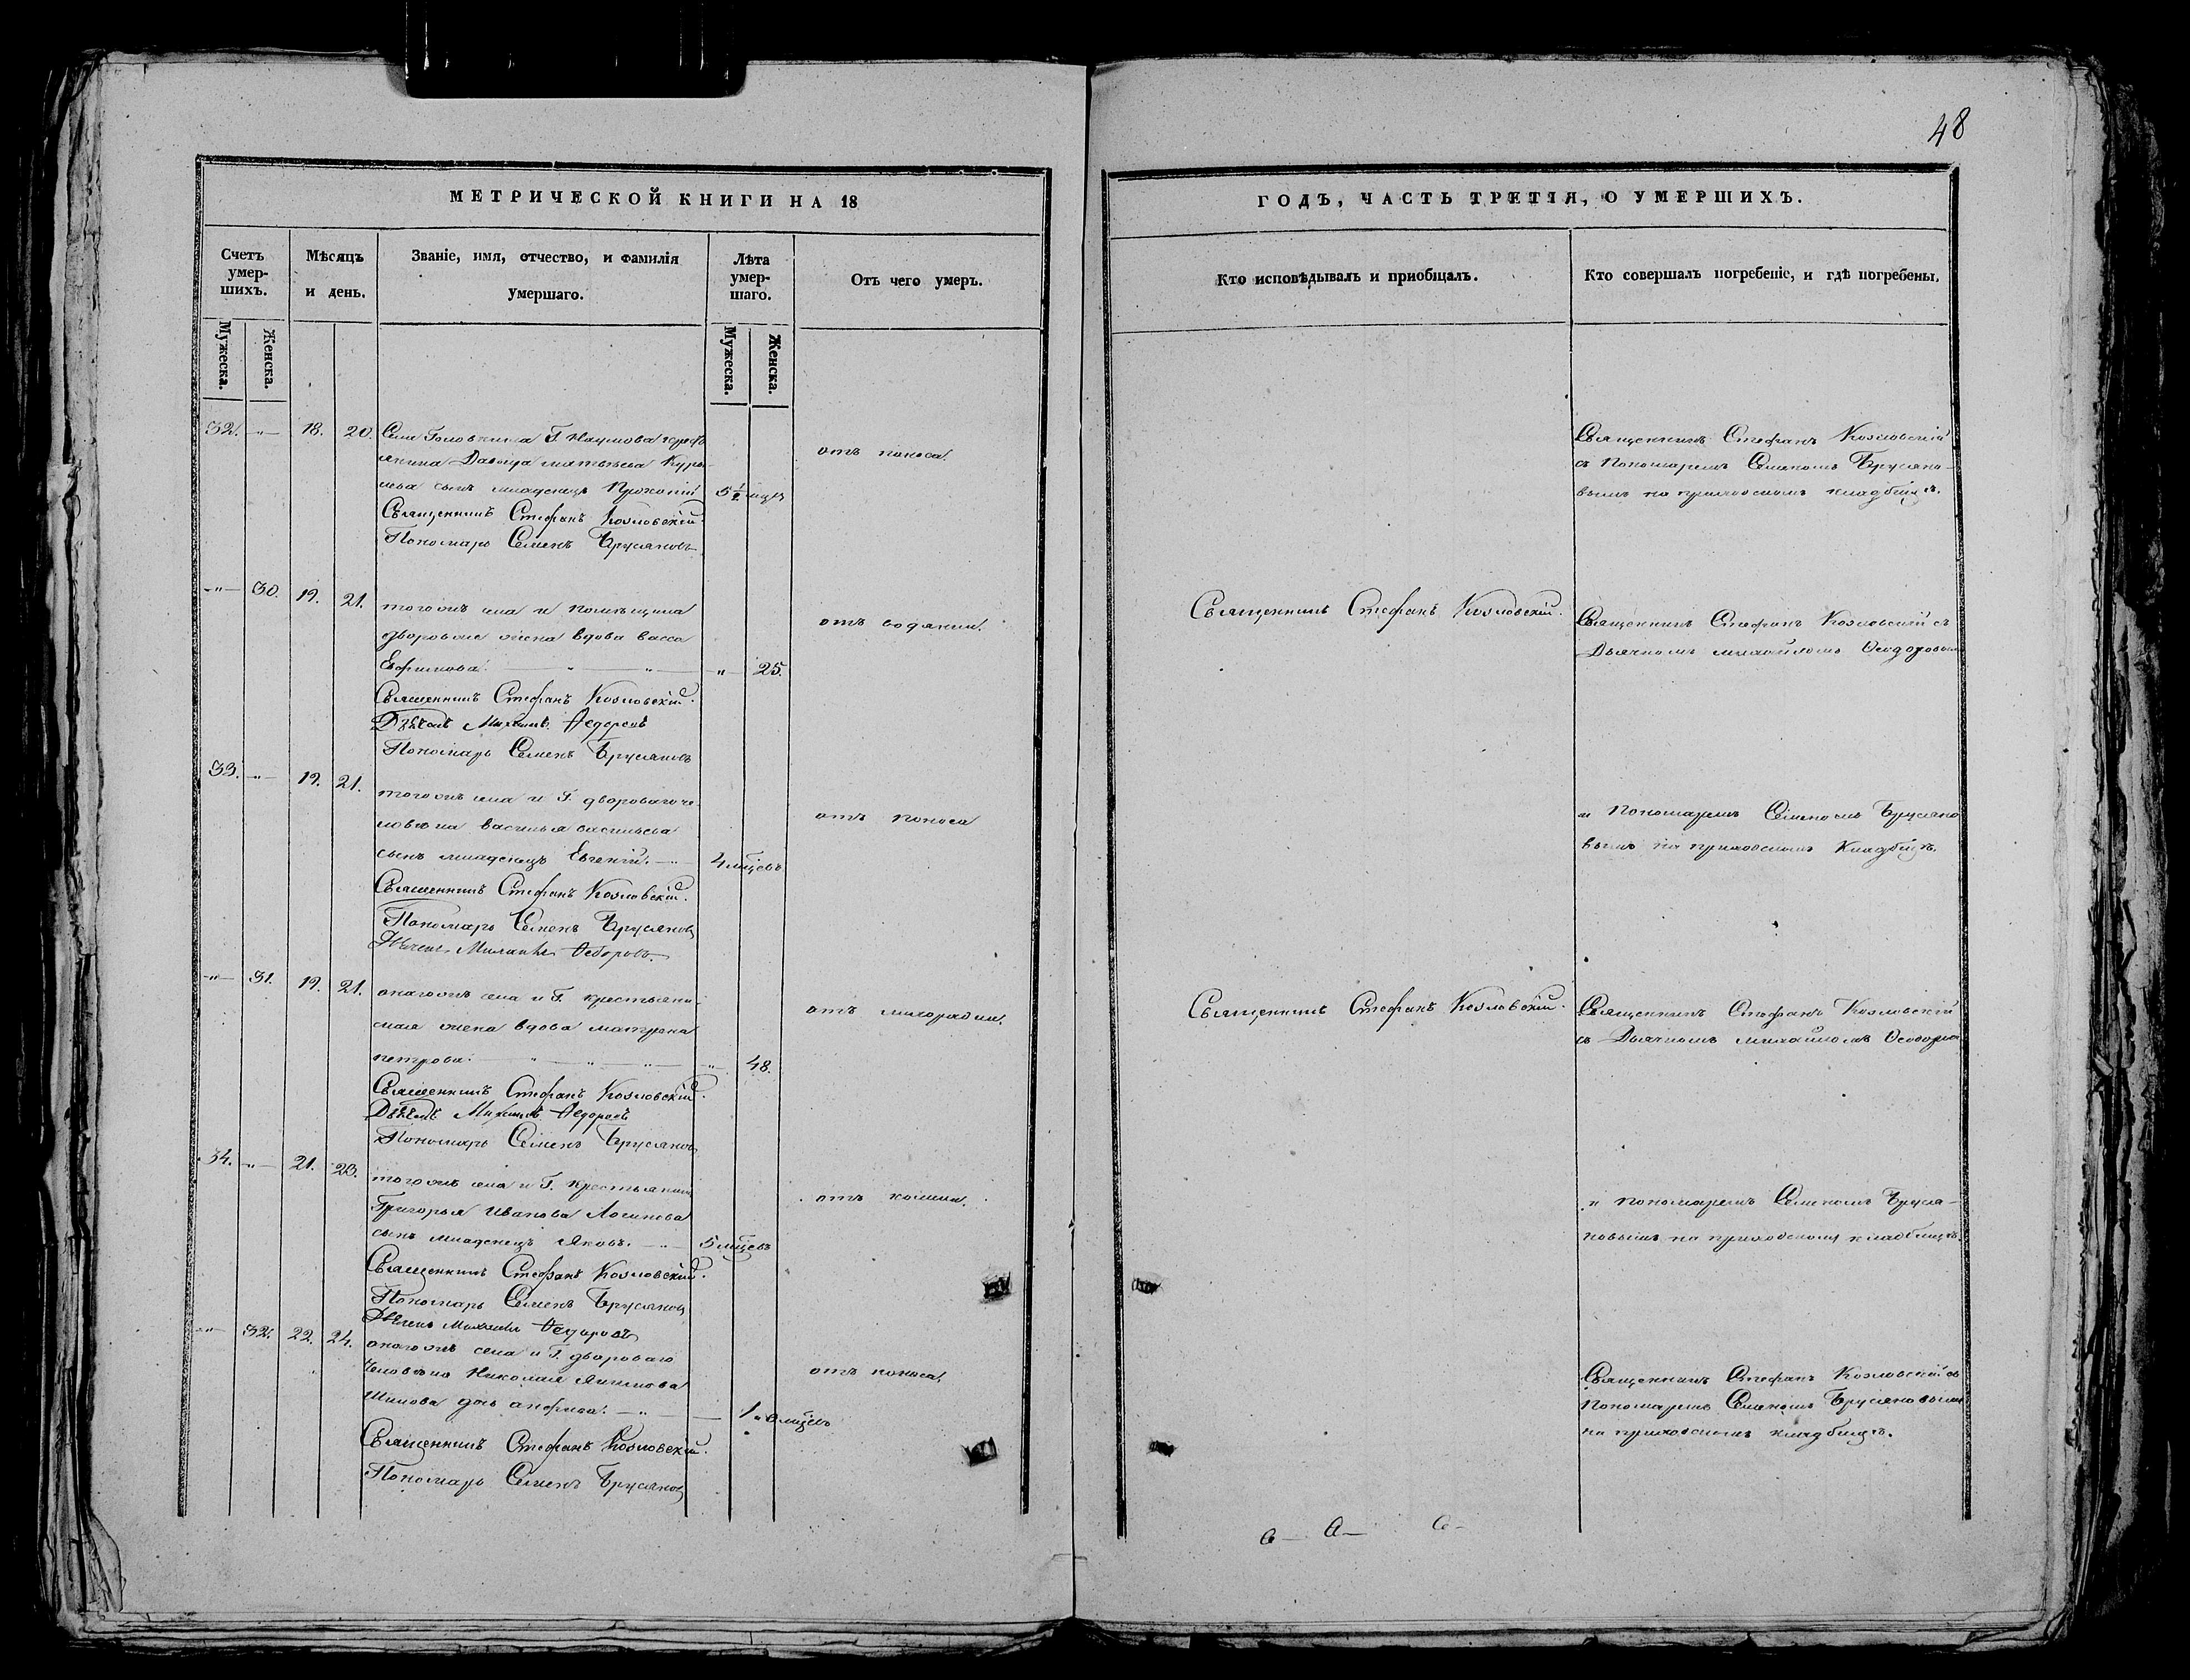 48
МЕТРИЧЕСКОЙ КНИГИ НА 18
ГОДЪ, ЧАСТЬ ТРЕТІЯ, О УМЕРШИХЪ.
Счетъ умер-шихъ.
Мѣсяцъ и день.
Званіе, имя, отчество, и фамилія умершаго.
Лѣта умер-шаго.
Отъ чего умеръ.
Кто исповѣдывалъ и пріобщалъ.
Кто совершалъ погребеніе, и гдѣ погребены.
Мужеска.
Женска.
Мужеска.
Женска.
32. 18. 20. Села Головкина Г. Наумова кресть
янина Давыда Матвѣева
сынъ младенецъ Прокопій 5½
отъ поноса.
Священникъ Стефанъ Козловскій.
Пономарь Семенъ Брусяновъ
Священникъ Стефанъ Козловскій
съ Пономаремъ Семеномъ Брусяно-
вымъ на приходскомъ кладбищѣ.
30. 19. 21. тогожъ села и помѣщика
дворовая жена вдова васса
Ефимова. 25.
отъ водянки.
Священникъ Стефанъ Козловскій.
Дьячекъ Михаилъ Федоровъ
Пономарь Семенъ Брусяновъ
Священникъ Стефанъ Козловскій.
Священникъ Стефанъ Козловскій съ
Дьячкомъ Михайломъ Ѳеодоровым
33. 19. 21. тогожъ села и Г. двороваго че
ловѣка василья васильева
сынъ младенецъ Евгеній. 4 мѣсцевъ
отъ поноса
Священникъ Стефанъ Козловскій.
Пономарь Семенъ Брусяновъ
Дьячекъ Михаилъ Федоровъ.
и Пономаремъ Семеномъ Брусяно
вымъ на приходскомъ Кладбищѣ.
31. 19. 21. онагожъ села и Г. крестьянс
кая жена вдова матрена
петрова. 48.
отъ лихорадки.
Священникъ Стефанъ Козловскій.
Дьячекъ Михаилъ Федоровъ
Пономарь Семенъ Брусяновъ
Священникъ Стефанъ Козловскій.
Священникъ Стефанъ Козловскій
съ Дьячкомъ михайломъ
34. 21. 23. тогожъ села и Г. крестьянина
Григорья Иванова Логинова
сынъ младенецъ Яковъ. 5 мѣсцевъ
отъ кашля.
Священникъ Стефанъ Козловскій.
Пономарь Семенъ Брусяновъ
Дьячекъ Михаилъ Федоровъ
и пономаремъ Семеномъ Бруся-
новымъ на приходскомъ кладбищѣ.
32. 22. 24. онагожъ села и Г. двороваго
Человѣка Николая Якимова
дочь анфиса.
отъ поноса.
Священникъ Стефанъ Козловскій.
Пономарь Семенъ Брусяновъ
Священникъ Стефанъ Козловскій съ
Пономаремъ Семеномъ Брусяновымъ
на приходскомъ кладбищѣ.